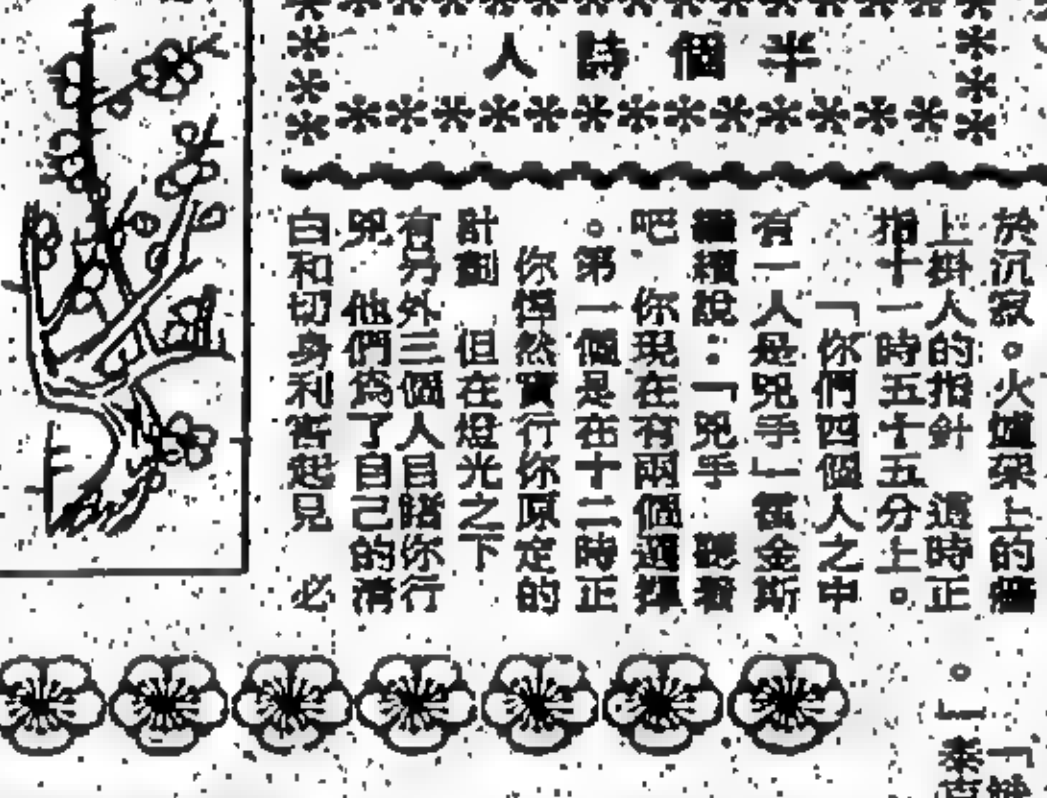 半個時人
於沉寂。火爐架上的
上掛人的指針 這時正
指十一時五十五分上。
「你們四個人之中
有一人是兇手」霍金斯
繼續說：「兇手 聽着
吧 你現在有兩個選擇
。第一個是在十二時正
你悍然實行你原定的
計劃 但在燈光之下
有另外三個人目睹你行
兇 他們爲了自己的清
白和切身利害起見 必
。」